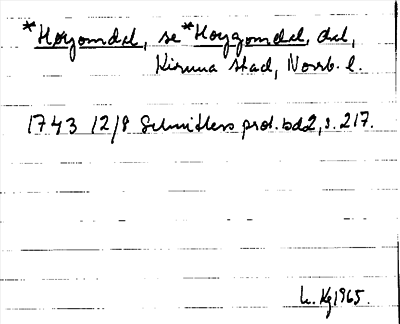 *Høyomdal, se *Høygomdal, dal,
Kiruna stad, Norrb. l.
1743 12/8 Schnitlers prot. bd 2, s. 217.
L. Kg 1965.